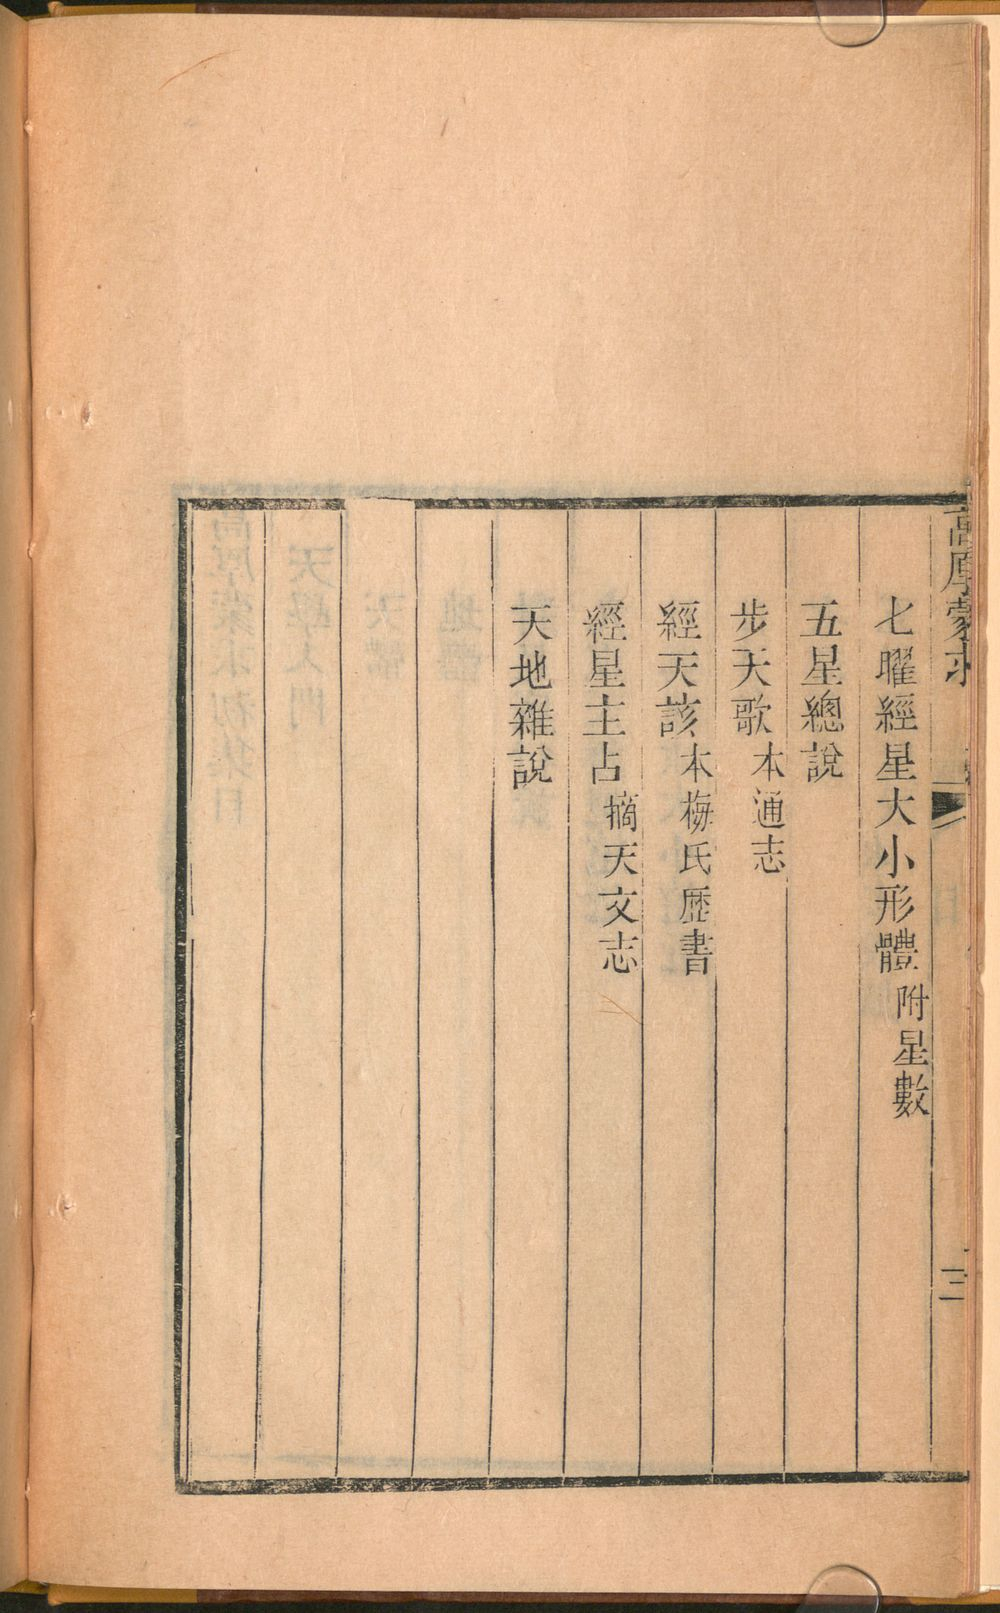 高厚蒙求
三
七曜經星大小形體附星數
五星總說
步天歌本通志
經天該本梅氏歷書
經星主占摘天文志
天地雜說